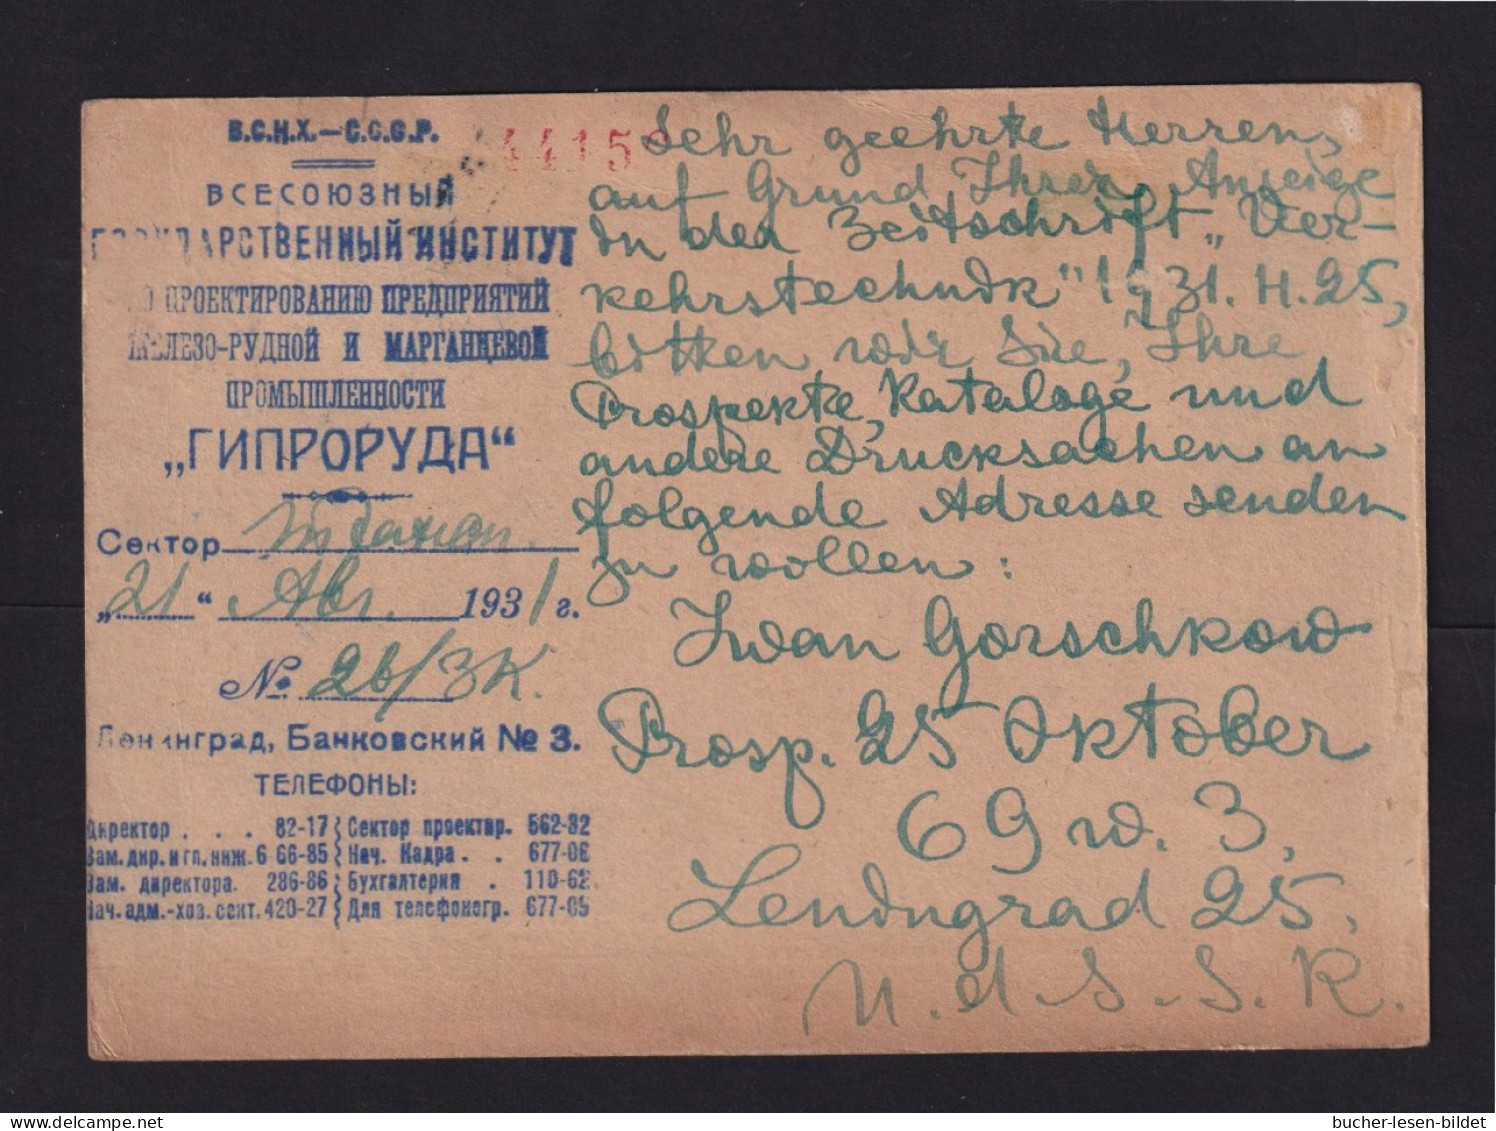 В.С.Н.Х.—С.С.С.Р.
ВСЕСОЮЗНЫЙ
ГОСУДАРСТВЕННЫЙ ИНСТИТУТ
ПО ПРОЕКТИРОВАНИЮ ПРЕДПРИЯТИЙ
ЖЕЛЕЗО-РУДНОЙ И МАРГАНЦЕВОЙ
ПРОМЫШЛЕННОСТИ
„ГИПРОРУДА“
Сектор
„21“ Авг. 1931 г.
№ 26/3К.
Ленинград, Банковский № 3.
ТЕЛЕФОНЫ:
Директор . . . 82-17
Зам. дир. и гл. инж. 6 66-85
Зам. директора. 286-86
Нач. адм.-хоз. сект. 420-27
Сектор проектир. 562-82
Нач. Кадра . . 677-06
Бухгалтерия . 110-62
Для телефоногр. 677-05
4415
Sehr geehrte Herren,
auf Grund Ihrer Anzeige
in der Zeitschrift „Ver-
kehrstechnik" 1931. H. 25,
bitten wir Sie, Ihre
Prospekte, Kataloge und
andere Drucksachen an
folgende Adresse senden
zu wollen:
Iwan Gorschkow
Prosp. 25 Oktober
69 w. 3,
Leningrad 25.
U. d. S. S. R.
bucher-lesen-bildet.com